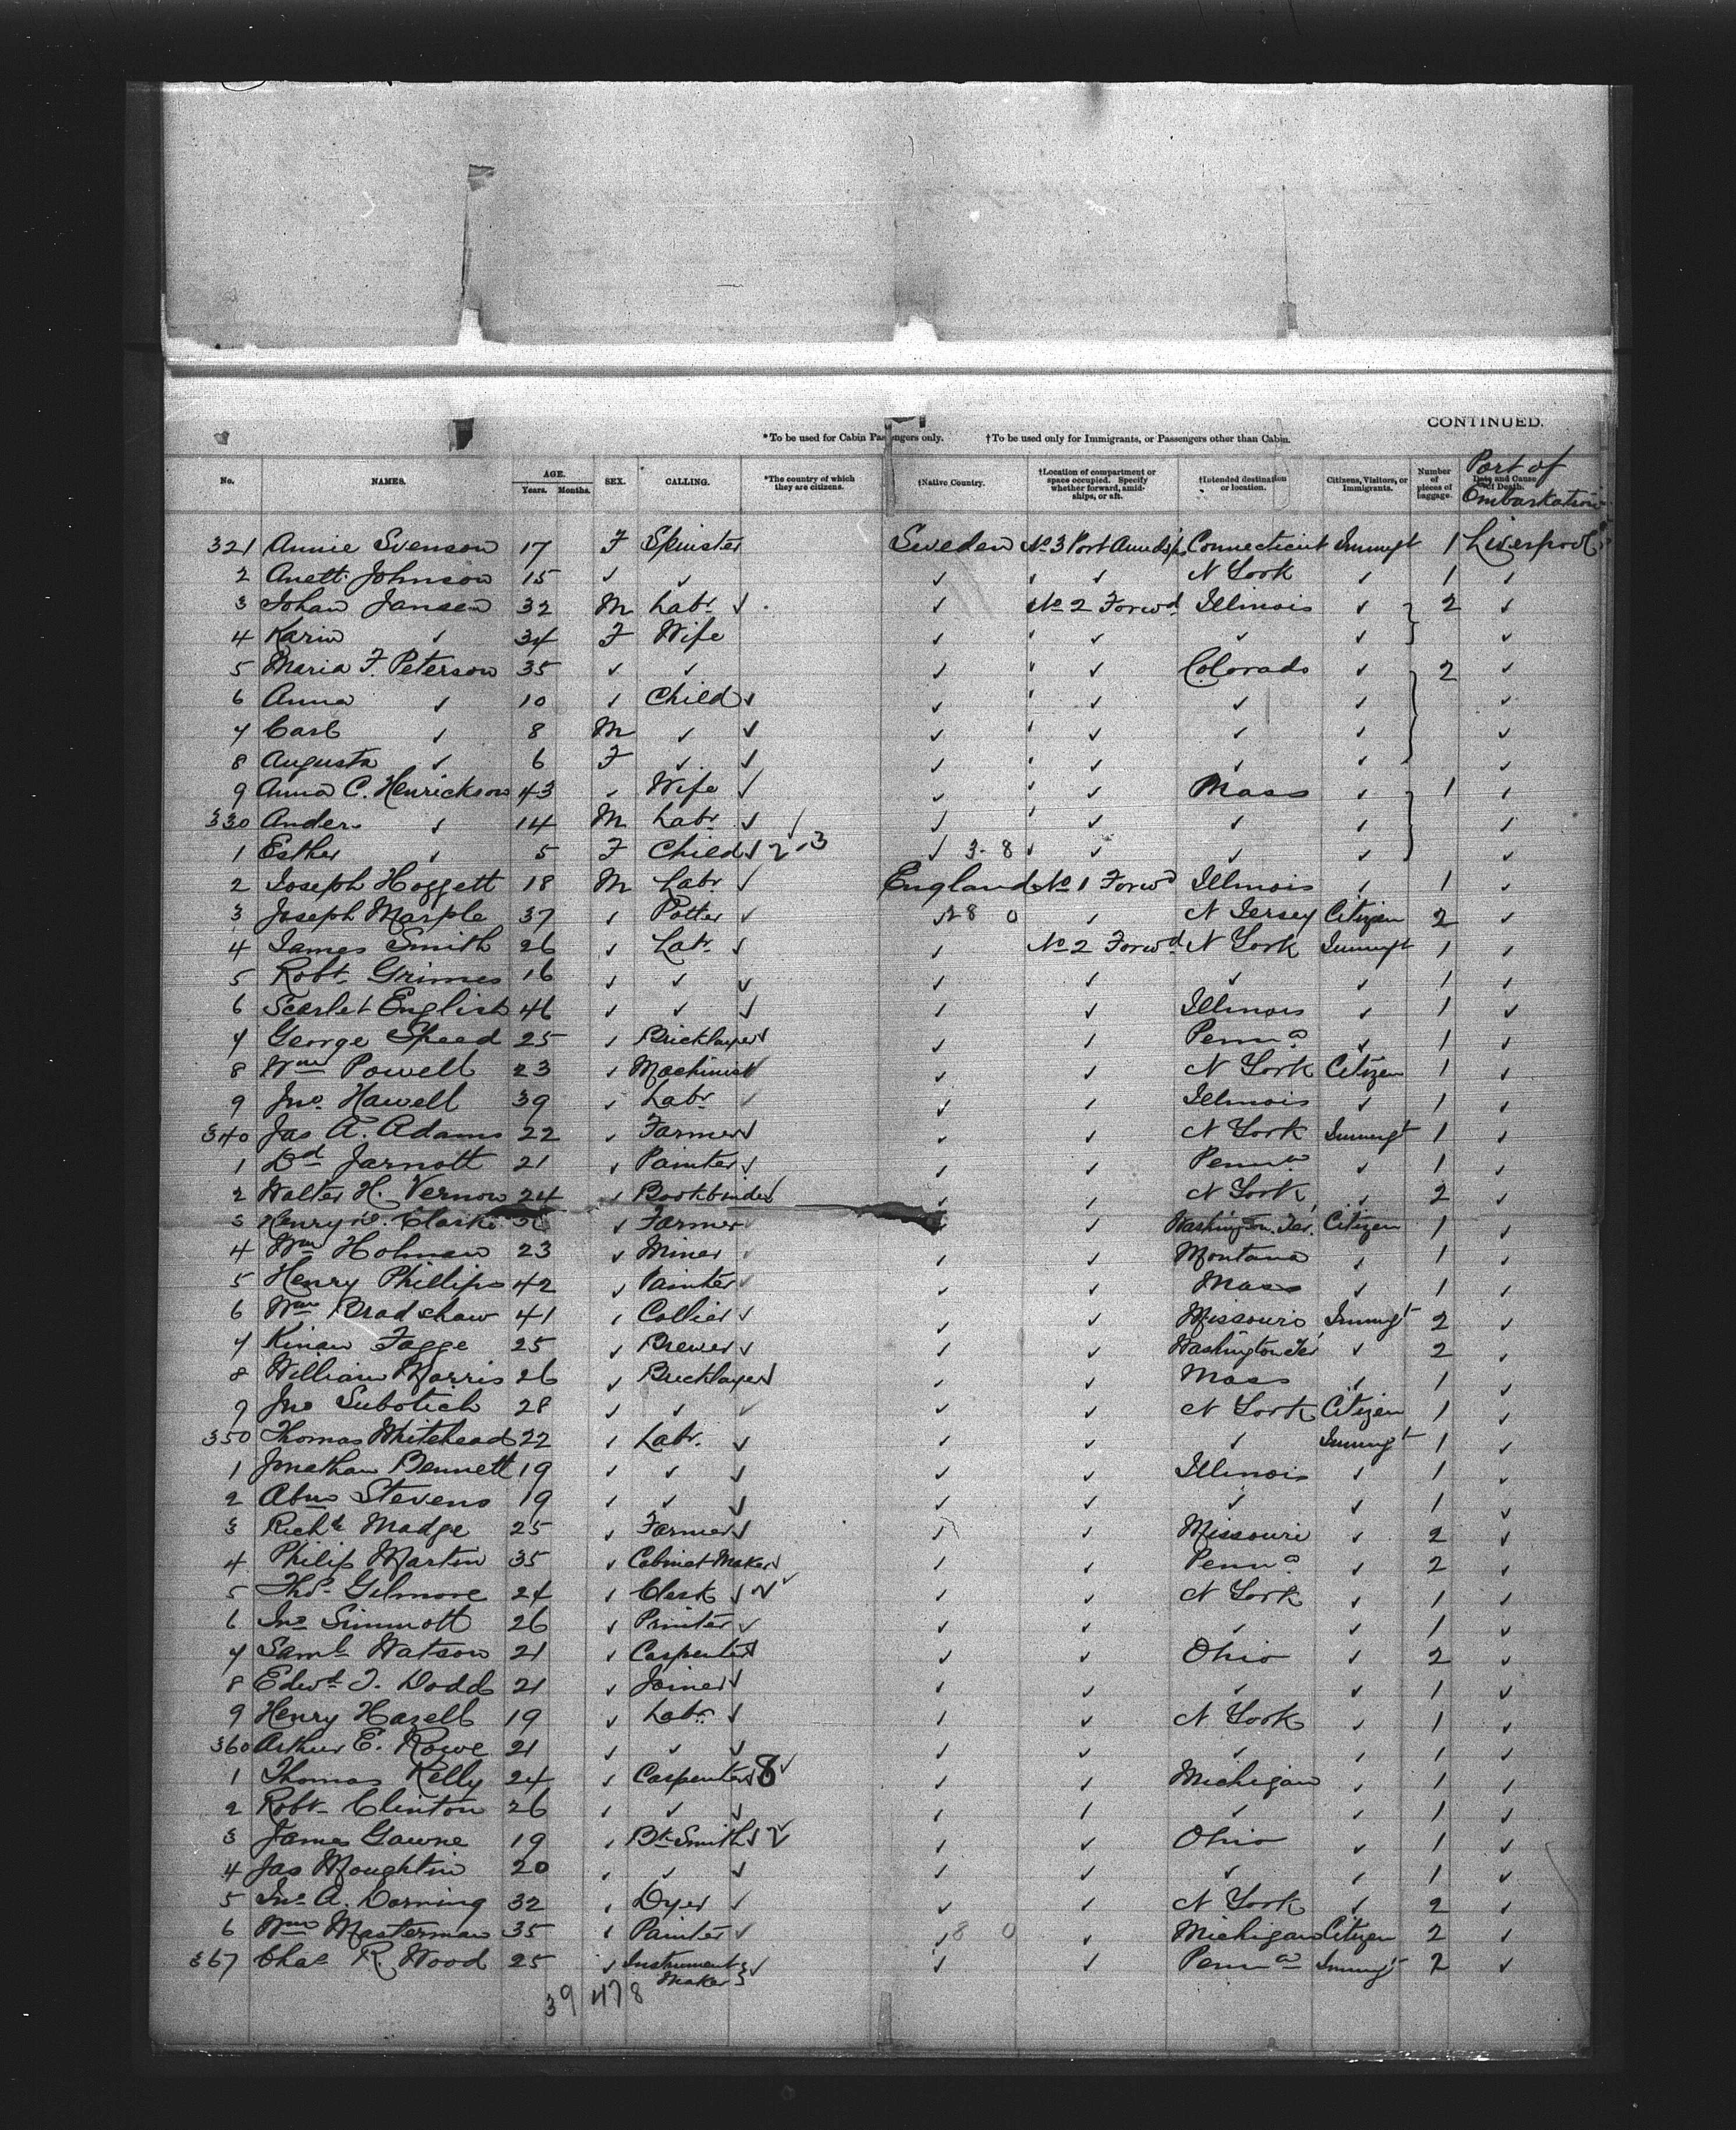 CONTINUED.
*To be used for Cabin Passengers only. †To be used only for Immigrants, or Passengers other than Cabin.
No. NAMES. AGE. Years. Months. SEX. CALLING. *The country of which they are citizens. †Native Country. †Location of compartment or space occupied. Specify whether forward, amidships, or aft. †Intended destination or location. Citizens, Visitors, or Immigrants. Number of pieces of baggage. Date and Cause of Death. Port of Embarkation
321 Annie Svenson 17 F Spinster Sweden No 3 Port Amidsp Connecticut Immgt 1 Liverpool
2 Anett Johnson 15 ✓ ✓ ✓ ✓ ✓ N York ✓ 1 ✓
3 Johan Jansen 32 M Labr ✓ ✓ No 2 Forwd Illinois ✓ 2 ✓
4 Karin ✓ 34 F Wife ✓ ✓ ✓ ✓ ✓ ✓
5 Maria F. Peterson 35 ✓ ✓ ✓ ✓ ✓ Colorado ✓ 2 ✓
6 Anna ✓ 10 ✓ Child ✓ ✓ ✓ ✓ ✓ ✓ ✓
7 Carl ✓ 8 M ✓ ✓ ✓ ✓ ✓ ✓ ✓ ✓
8 Augusta ✓ 6 F ✓ ✓ ✓ ✓ ✓ ✓ ✓ ✓
9 Anna C. Henrickson 43 ✓ Wife ✓ ✓ ✓ ✓ Mass ✓ 1 ✓
330 Anders ✓ 14 M Labr ✓ ✓ ✓ ✓ ✓ ✓ ✓
1 Esther ✓ 5 F Child ✓ 2 13 ✓ 3-8 ✓ ✓ ✓ ✓ ✓
2 Joseph Hoggett 18 M Labr ✓ England No 1 Forwd Illinois ✓ 1 ✓
3 Joseph Marple 37 ✓ Potter ✓ ✓ 28 0 ✓ N Jersey Citizen 2 ✓
4 James Smith 26 ✓ Labr ✓ ✓ No 2 Forwd N York Immgt 1 ✓
5 Robt Grimes 16 ✓ ✓ ✓ ✓ ✓ ✓ ✓ 1 ✓
6 Scarlet English 46 ✓ ✓ ✓ ✓ ✓ Illinois ✓ 1 ✓
7 George Speed 25 ✓ Bricklayer ✓ ✓ ✓ Penna ✓ 1 ✓
8 Wm Powell 23 ✓ Machinist ✓ ✓ ✓ N York Citizen 1 ✓
9 Jno. Hawell 39 ✓ Labr ✓ ✓ ✓ Illinois ✓ 1 ✓
340 Jas A. Adams 22 ✓ Farmer ✓ ✓ ✓ N York Immgt 1 ✓
1 Dd Jarnott 21 ✓ Painter ✓ ✓ ✓ Penna ✓ 1 ✓
2 Walter H. Vernon 24 ✓ Bookbinder ✓ ✓ ✓ N York ✓ 2 ✓
3 Henry Clarke ✓ Farmer ✓ ✓ ✓ Washington Ter. Citizen 1 ✓
4 Wm Holman 23 ✓ Miner ✓ ✓ ✓ Montana ✓ 1 ✓
5 Henry Phillips 42 ✓ Painter ✓ ✓ ✓ Mass ✓ 1 ✓
6 Wm Bradshaw 41 ✓ Collier ✓ ✓ ✓ Missouri Immgt 2 ✓
7 Kinan Fagge 25 ✓ Brewer ✓ ✓ ✓ Washington Ter ✓ 2 ✓
8 William Morris 26 ✓ Bricklayer ✓ ✓ ✓ Mass ✓ 1 ✓
9 Jno Subotich 28 ✓ ✓ ✓ ✓ ✓ N York Citizen 1 ✓
350 Thomas Whitehead 22 ✓ Labr. ✓ ✓ ✓ ✓ Immgt 1 ✓
1 Jonathan Bennett 19 ✓ ✓ ✓ ✓ ✓ Illinois ✓ 1 ✓
2 Abm Stevens 19 ✓ ✓ ✓ ✓ ✓ ✓ ✓ 1 ✓
3 Richd Madge 25 ✓ Farmer ✓ ✓ ✓ Missouri ✓ 2 ✓
4 Philip Martin 35 ✓ Cabinet Maker ✓ ✓ ✓ Penna ✓ 2 ✓
5 Thos. Gilmore 24 ✓ Clerk ✓ 2 ✓ ✓ ✓ N York ✓ 1 ✓
6 Jno Simmott 26 ✓ Printer ✓ ✓ ✓ ✓ ✓ 1 ✓
7 Saml Watson 21 ✓ Carpenter ✓ ✓ ✓ Ohio ✓ 2 ✓
8 Edwd T. Dodd 21 ✓ Joiner ✓ ✓ ✓ ✓ ✓ 1 ✓
9 Henry Hazell 19 ✓ Labr ✓ ✓ ✓ N York ✓ 1 ✓
360 Arthur E. Rowe 21 ✓ ✓ ✓ ✓ ✓ ✓ ✓ 1 ✓
1 Thomas Kelly 24 ✓ Carpenter ✓ 8 ✓ ✓ ✓ Michigan ✓ 1 ✓
2 Robt Clinton 26 ✓ ✓ ✓ ✓ ✓ ✓ ✓ 1 ✓
3 James Gawne 19 ✓ Bk Smith ✓ 2 ✓ ✓ ✓ Ohio ✓ 1 ✓
4 Jas Moughtin 20 ✓ ✓ ✓ ✓ ✓ ✓ ✓ 1 ✓
5 Jno A. Dorning 32 ✓ Dyer ✓ ✓ ✓ N York ✓ 2 ✓
6 Wm Masterman 35 ✓ Painter ✓ ✓ 8 0 ✓ Michigan Citizen 2 ✓
367 Chas R. Wood 25 ✓ Instrument Maker ✓ ✓ ✓ Penna Immgt 2 ✓
39 478